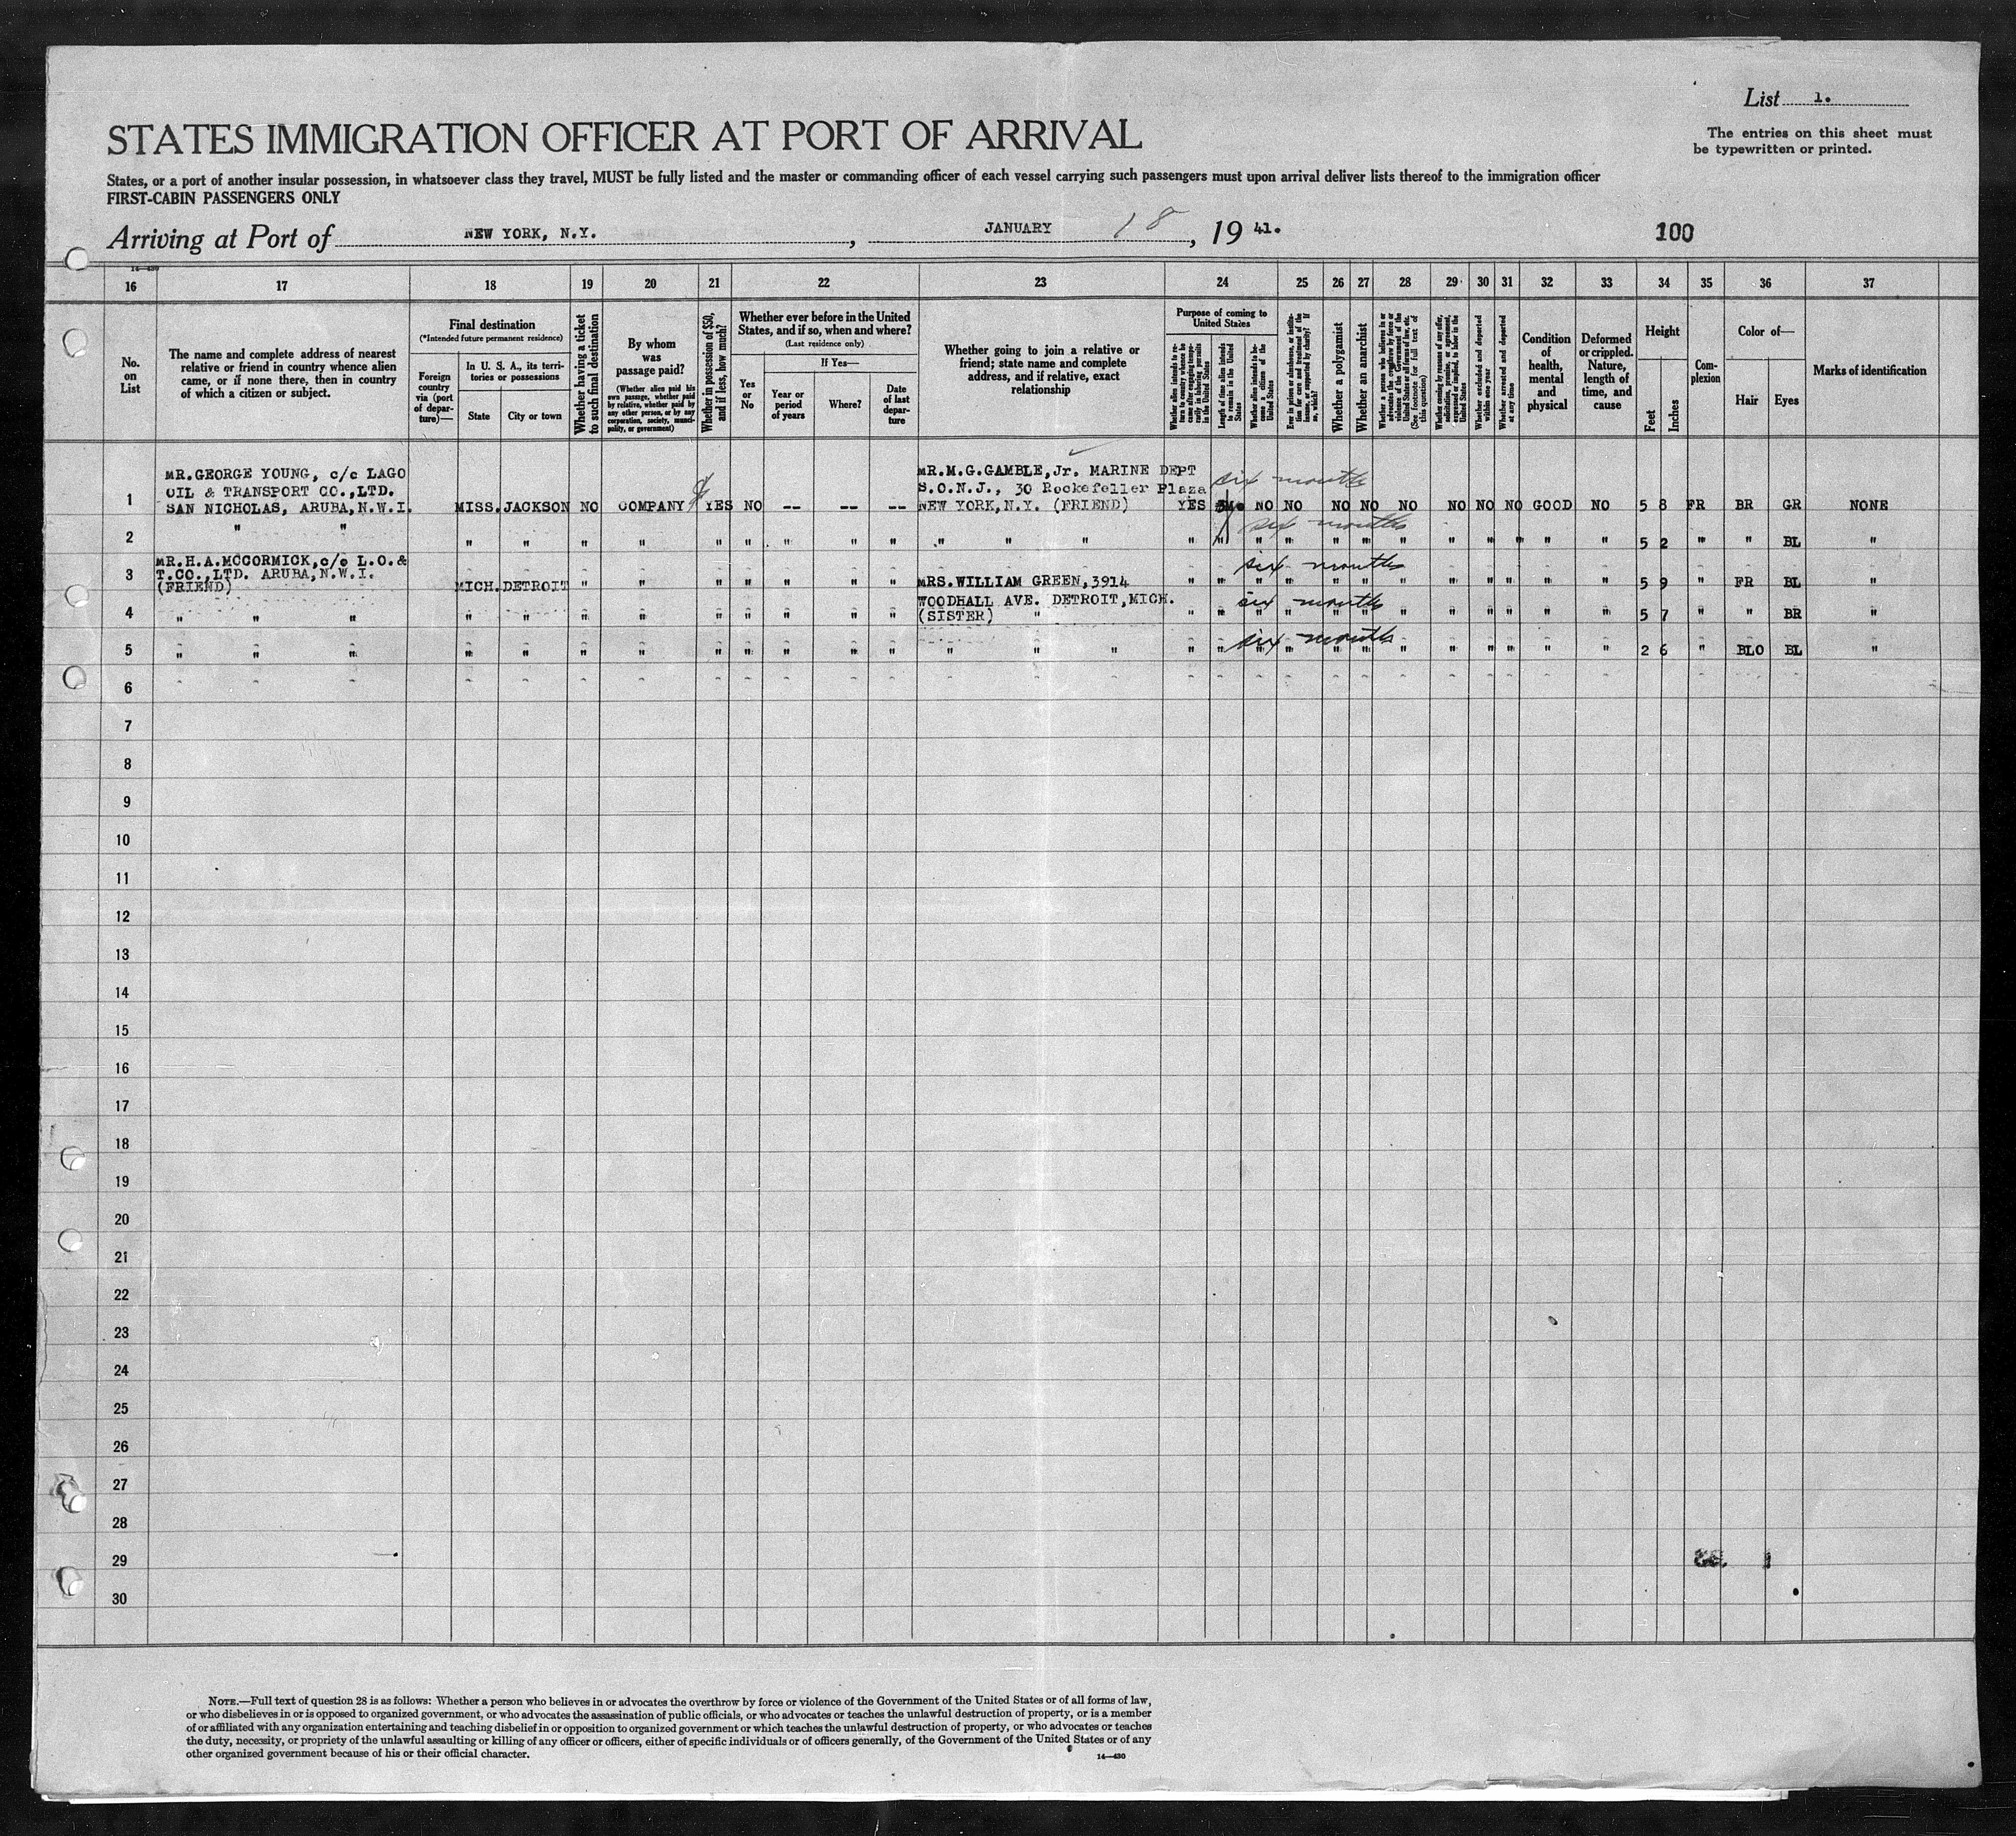 List 1.
STATES IMMIGRATION OFFICER AT PORT OF ARRIVAL
The entries on this sheet must
be typewritten or printed.
States, or a port of another insular possession, in whatsoever class they travel, MUST be fully listed and the master or commanding officer of each vessel carrying such passengers must upon arrival deliver lists thereof to the immigration officer
FIRST-CABIN PASSENGERS ONLY
Arriving at Port of NEW YORK, N.Y., JANUARY 18, 1941. 100
14—430
16 17 18 19 20 21 22 23 24 25 26 27 28 29 30 31 32 33 34 35 36 37
No.
on
List
The name and complete address of nearest
relative or friend in country whence alien
came, or if none there, then in country
of which a citizen or subject.
Final destination
(*Intended future permanent residence)
Foreign
country
via (port
of depar-
ture)—
In U. S. A., its terri-
tories or possessions
State
City or town
Whether having a ticket
to such final destination
By whom
was
passage paid?
(Whether alien paid his
own passage, whether paid
by relative, whether paid by
any other person, or by any
corporation, society, munci-
pality, or government)
Whether in possession of $50,
and if less, how much?
Whether ever before in the United
States, and if so, when and where?
(Last residence only)
Yes
or
No
If Yes—
Year or
period
of years
Where?
Date
of last
depar-
ture
Whether going to join a relative or
friend; state name and complete
address, and if relative, exact
relationship
Purpose of coming to
United States
Whether alien intends to re-
turn to country whence he
came after engaging tempo-
rarily in laboring pursuits
in the United States
Length of time alien intends
to remain in the United
States
Whether alien intends to be-
come a citizen of the
United States
Ever in prison or almshouse, or institu-
tion for care and treatment of the
insane, or supported by charity? If
so, which?
Whether a polygamist
Whether an anarchist
Whether a person who believes in or
advocates the overthrow by force or
violence of the Government of the
United States or all forms of law, etc.
(See footnote for full text of
this question)
Whether coming by reasons of any offer,
solicitation, promise, or agreement,
expressed or implied, to labor in the
United States
Whether excluded and deported
within one year
Whether arrested and deported
at any time
Condition
of
health,
mental
and
physical
Deformed
or crippled.
Nature,
length of
time, and
cause
Height
Feet
Inches
Com-
plexion
Color of—
Hair
Eyes
Marks of identification
MR.GEORGE YOUNG, c/c LAGO MR.M.G.GAMBLE,Jr. MARINE DEPT six months
OIL & TRANSPORT CO.,LTD. S.O.N.J., 30 Rockefeller Plaza
1 SAN NICHOLAS, ARUBA,N.W.I. MISS. JACKSON NO COMPANY YES NO -- -- -- NEW YORK,N.Y. (FRIEND) YES NO NO NO NO NO NO NO NO GOOD NO 5 8 FR BR GR NONE
" " six months
2 " " " " " " " " " " " " " " " " " " " " " " " " 5 2 " " BL "
MR.H.A.MCCORMICK,c/o L.O.& six months
3 T.CO.,LTD. ARUBA,N.W.I.
(FRIEND) MICH. DETROIT " " " " " " " MRS.WILLIAM GREEN,3914 " " " " " " " " " " " " 5 9 " FR BL "
WOODHALL AVE. DETROIT,MICH. six months
4 " " " " " " " " " " " " (SISTER) " " " " " " " " " " " " " 5 7 " " BR "
six months
5 " " " " " " " " " " " " " " " " " " " " " " " " " " " 2 6 " BLO BL "
6
7
8
9
10
11
12
13
14
15
16
17
18
19
20
21
22
23
24
25
26
27
28
29
30
NOTE.—Full text of question 28 is as follows: Whether a person who believes in or advocates the overthrow by force or violence of the Government of the United States or of all forms of law,
or who disbelieves in or is opposed to organized government, or who advocates the assassination of public officials, or who advocates or teaches the unlawful destruction of property, or is a member
of or affiliated with any organization entertaining and teaching disbelief in or opposition to organized government or which teaches the unlawful destruction of property, or who advocates or teaches
the duty, necessity, or propriety of the unlawful assaulting or killing of any officer or officers, either of specific individuals or of officers generally, of the Government of the United States or of any
other organized government because of his or their official character.
14—430